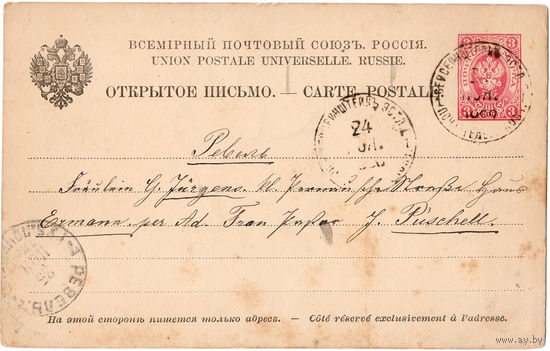 ВСЕМІРНЫЙ ПОЧТОВЫЙ СОЮЗЪ. РОССІЯ.
UNION POSTALE UNIVERSELLE. RUSSIE.
ОТКРЫТОЕ ПИСЬМО. — CARTE POSTALE
3 3
24
Ревель
Fräulein G. Jürgens. kl. Haus
Exmann per Ad. Frau Pastor J. Püschell.
РЕВЕЛЬ
На этой сторонѣ пишется только адресъ. — Côté réservé exclusivement à l'adresse.
www.ay.by